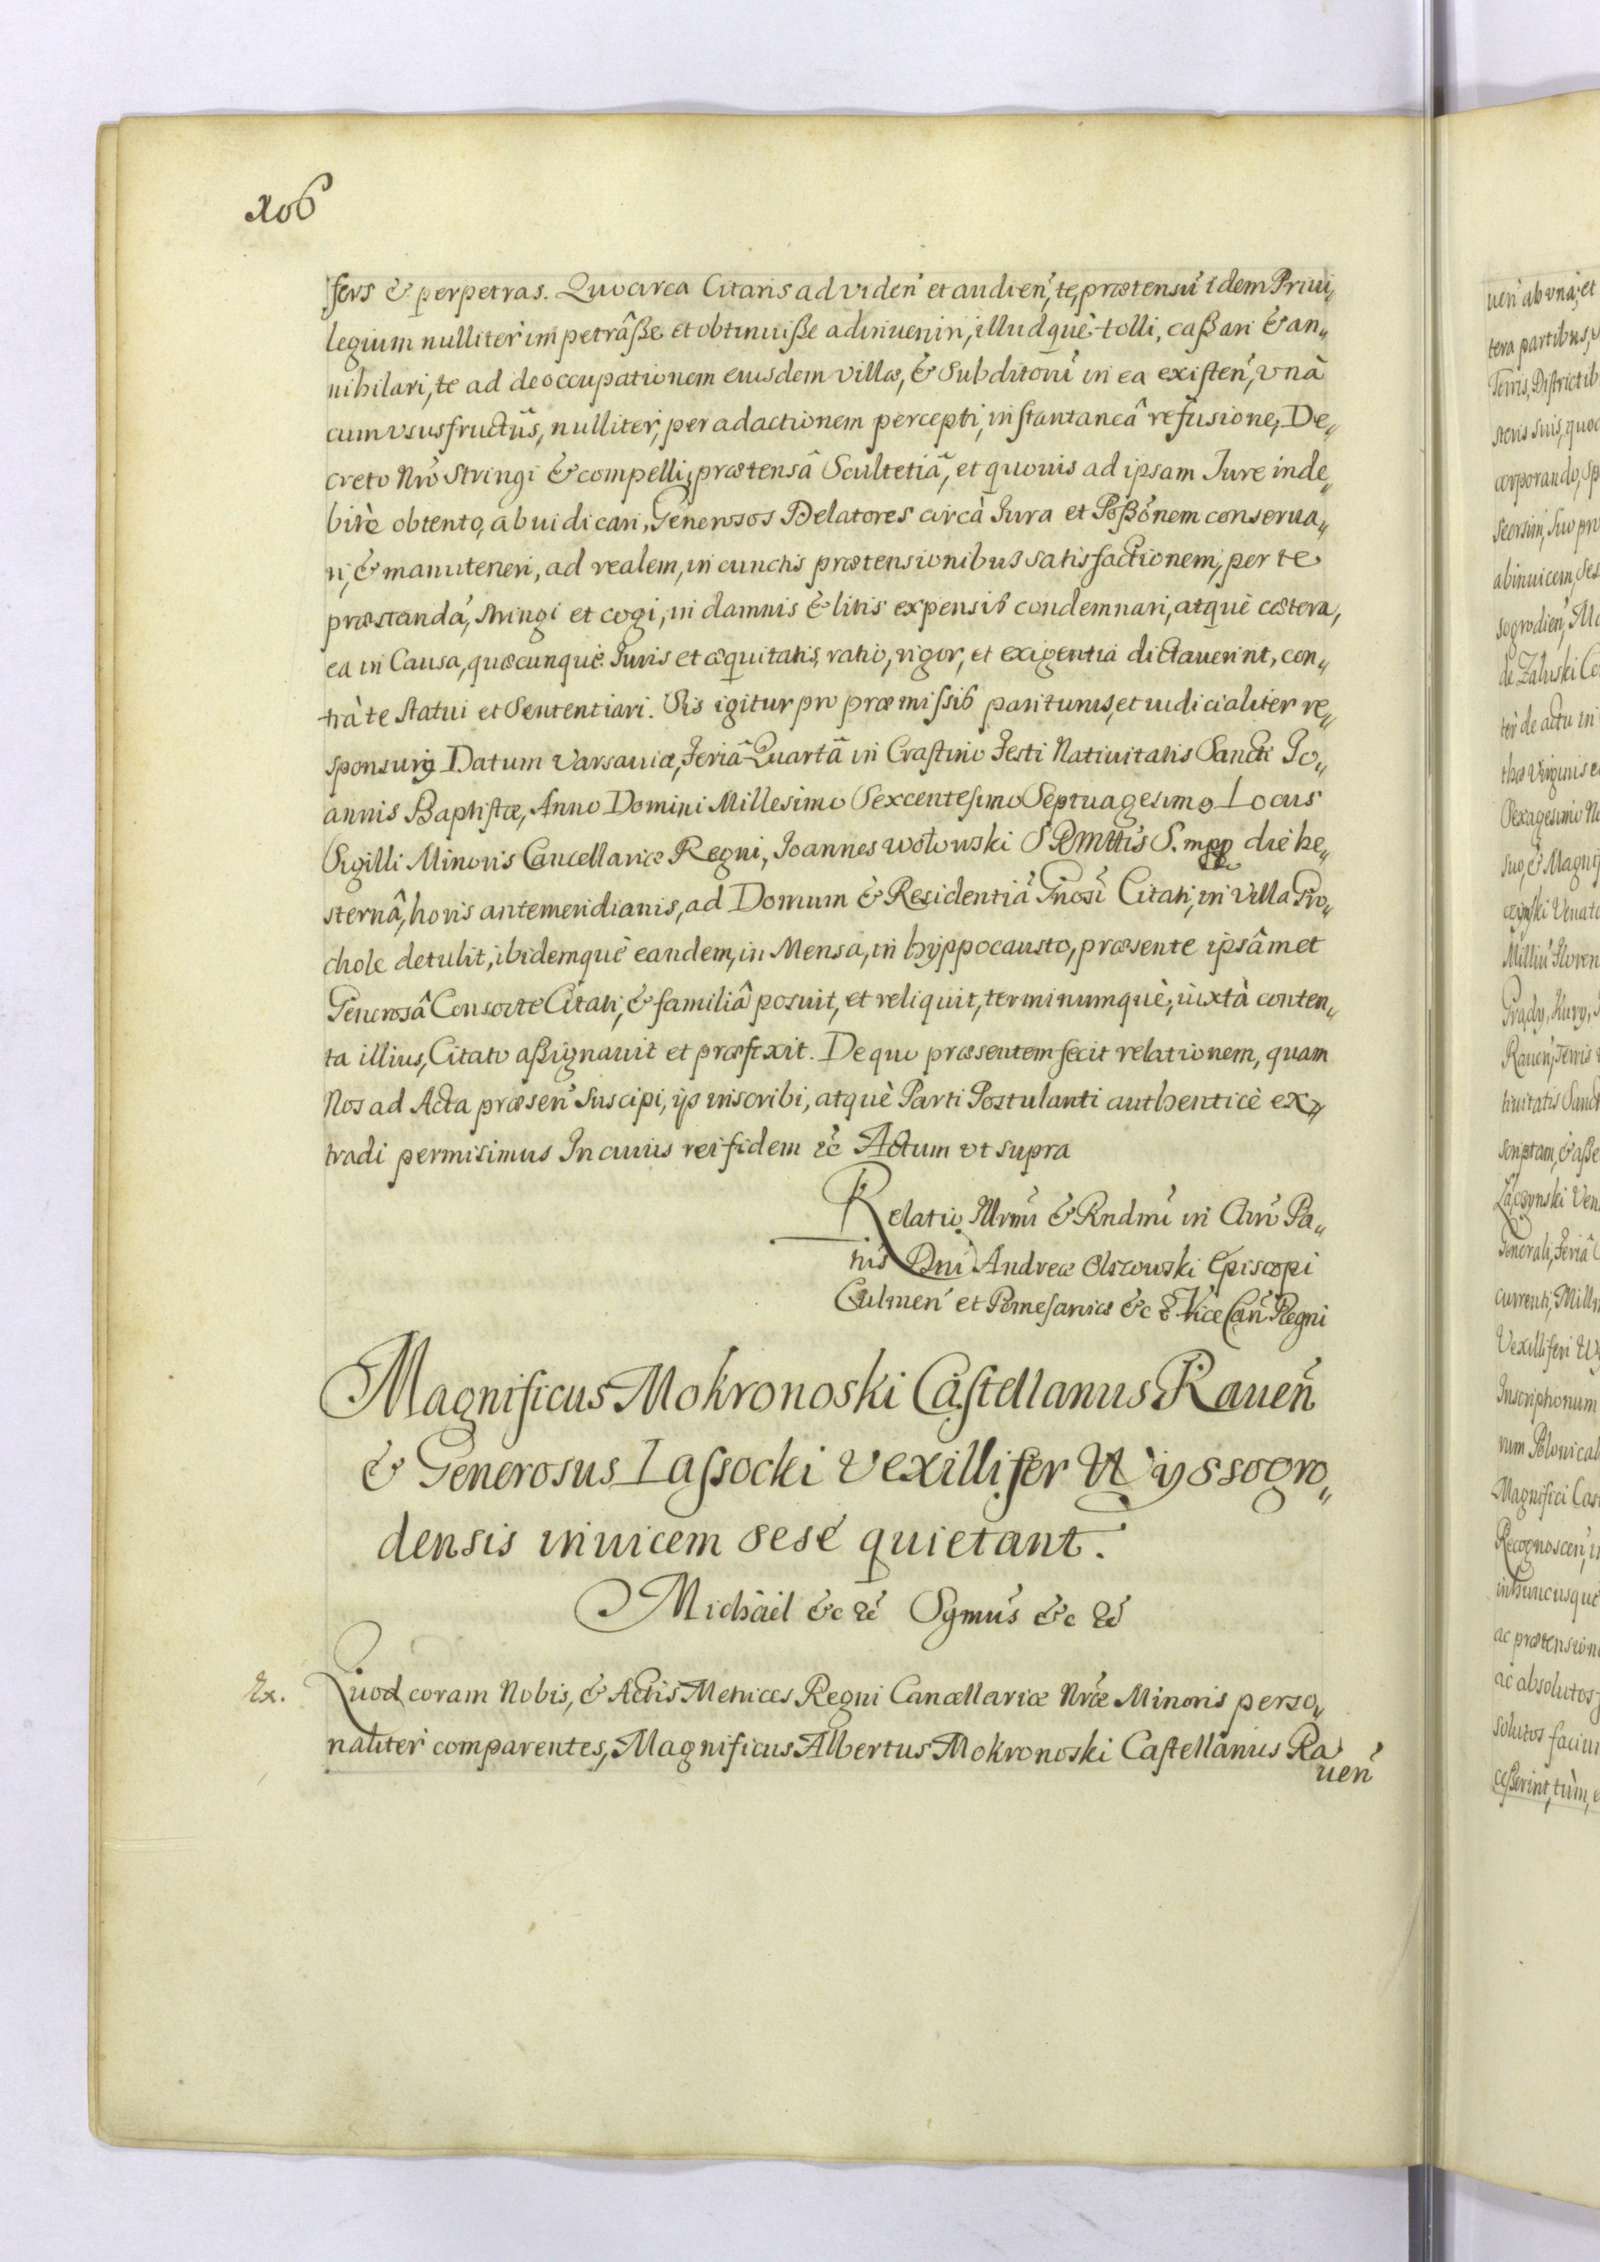 106
fers & perpetras. Quocirca Citaris ad viden̄ et audien̄, te, prætensū idem Priui„
legium nulliter impetrâsse et obtinuisse adinueniri, illudquè tolli, cassari & an„
nihilari, te ad deoccupationem eiusdem villæ, & Subditorū in ea existen̄, vnà
cum vsusfructūs, nulliter, per adactionem percepti, instantaneâ refusione, De„
creto Nr̄o Stringi & compelli, prætensâ Scultetiâ, et quouis ad ipsam Iure inde„
bitè obtento, abiudicari, Generosos Delatores circà Iura et Possōnem conserua„
ri, & manuteneri, ad realem, in cunctis prætensionibus satisfactionem, per te
præstandā, stringi et cogi, in damnis & litis expensis condemnari, atquè cætera,
ea in Causa, quæcunquè Iuris et æquitatis, ratio, rigor, et exigentia dictauerint, con„
trà te statui et Sententiari. Sis igitur pro præmissis pariturus, et iudicialiter re„
sponsurus Datum Varsauiæ, Feriâ Quartâ in Crastino Festi Natiuitatis Sancti Io„
annis Baptistæ, Anno Domini Millesimo Sexcentesimo Septuagesimo Locus
Sigilli Minoris Cancellariæ Regni, Ioannes Wołowski S. mpp die he„
sternâ, horis antemeridianis, ad Domum & Residentiā Gnosi Citati, in Villa Gro„
chole detulit, ibidemquè eandem, in Mensa, in hyppocausto, præsente ipsâmet
Generosâ Consorte Citati, & familiâ posuit, et reliquit, terminumquè, iuxtà conten„
ta illius, Citato assignauit et præfixit. De quo præsentem fecit relationem, quam
Nos ad Acta præsen̄ suscipi, ijs inscribi, atquè Parti Postulanti authenticè ex„
tradi permisimus In cuius rei fidem &c̄ Actum vt supra
Relatio Illrmi & Rndmi in Chr̄o Pa„
tris Dni Andreæ Olszowski Episcopi
Culmen̄ et Pomesaniæ &c & Vice Can̄ Regni
Magnificus Mokronoski Castellanus Rauen̄
& Generosus Lassocki Vexillifer Wyssogro„
densis inuicem sesé quietant.
Michäel &c &c̄ Sgmūs &c &c̄
Ex. Quod coram Nobis, & Actis Metrices Regni Cancellariæ Nr̄æ Minoris perso„
naliter comparentes, Magnificus Albertus Mokronoski Castellanus Ra
uen̄